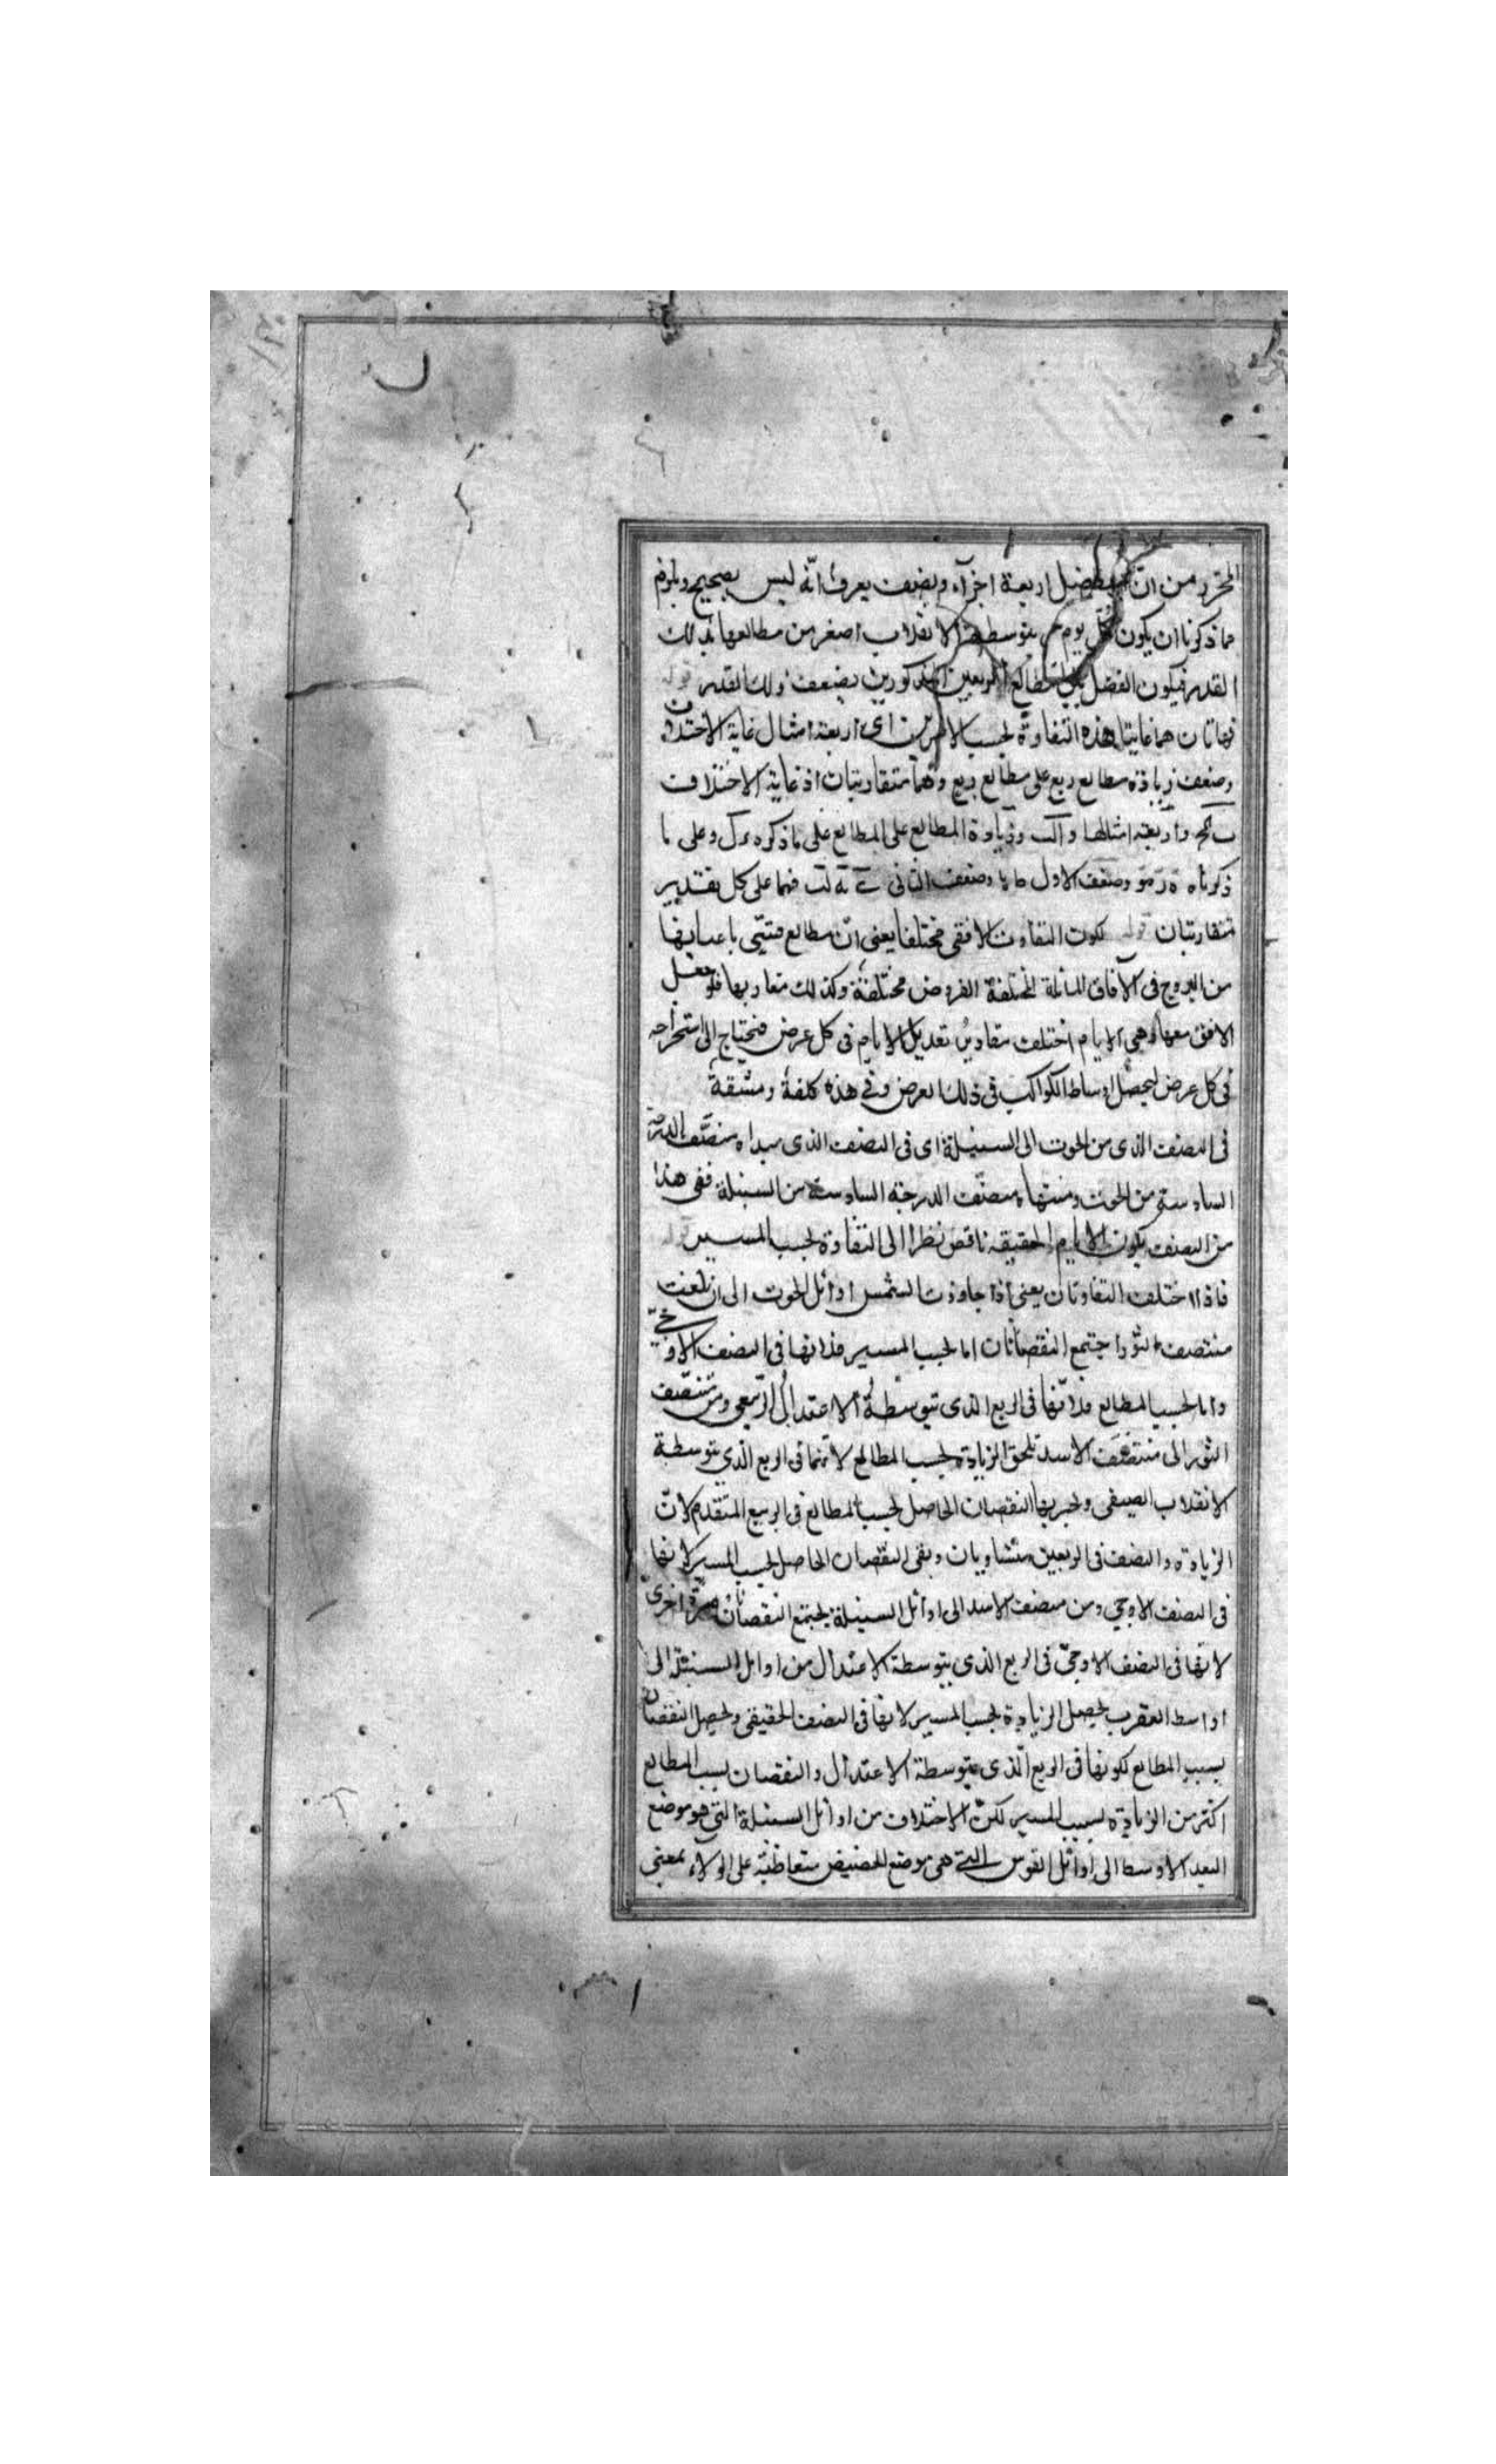 المحرر من ان الفضل اربعة اجزاء ونصف يعرف انه ليس بصحيح ويلزم
مما ذكرنا ان يكون كل يوم بتوسطه الانقلاب اصغر من مطالعها بذلك
القدر فيكون الفضل بين مطالع الربعين المذكورين بضعف ذلك القدر قوله
فهاتان هما غايتا هذه التفاوة بحسب الامرين اى اربعة امثال غاية الاختلاف
وضعف زيادة مطالع ربع على مطالع ربع وهما متقاربتان اذ غاية الاختلاف
واربعة امثالها وزيادة المطالع على المطالع على ما ذكره وعلى ما
ذكرناه وضعف الاول وضعف الثانى فهما على كل تقدير
متقاربتان قوله لكون التفاوت الافقى مختلفا يعنى ان مطالع قسى باعيانها
من البروج فى الآفاق المائلة المختلفة العروض مختلفة وكذلك مغاربها فلو جعل
الافق مبدأ الايام اختلف مقادير تعديل الايام فى كل عرض فنحتاج الى استخراجه
فى كل عرض ليحصل اوساط الكواكب فى ذلك العرض وفى هذه كلفة ومشقة
فى النصف الذى من الحوت الى السنبلة اى فى النصف الذى مبداه منصف الدرجة
السادسة من الحوت ومنتهاه منصف الدرجة السادسة من السنبلة ففى هذا
من النصف يكون الايام الحقيقة ناقص نظرا الى التفاوة بحسب المسير قوله
فاذا اختلف التفاوتان يعنى اذا جاوزت الشمس اوائل الحوت الى ان بلغت
منتصف الثور اجتمع النقصانان اما بحسب المسير فلانها فى النصف الاوجى
واما بحسب المطالع فلانها فى الربع الذى يتوسطه الاعتدال الربيعى ومن منتصف
الثور الى منتصف الاسد تلحق الزيادة بحسب المطالع لانها فى الربع الذى يتوسطه
الانقلاب الصيفى وتجبر بها النقصان الحاصل بحسب المطالع فى الربع المتقدم لان
الزيادة والنصف فى الربعين متساويان وبقى النقصان الحاصل بحسب المسير لانها
فى النصف الاوجى ومن منصف الاسد الى اوائل السنبلة يجتمع النقصانان مرة اخرى
لانها فى النصف الاوجى فى الربع الذى يتوسطه الاعتدال من اوايل السنبلة الى
اواسط العقرب يحصل الزيادة بحسب المسير لانها فى النصف الحقيقى ويحصل النقصان
بسبب المطالع لكونها فى الربع الذى يتوسطه الاعتدال والنقصان بسبب المطالع
اكثر من الزيادة بسبب المسير لكن الاختلاف من اوائل السنبلة التى هو موضع
البعد الاوسط الى اوائل القوس التى هى موضع الحضيض متعاظمة على الولاء بمعنى